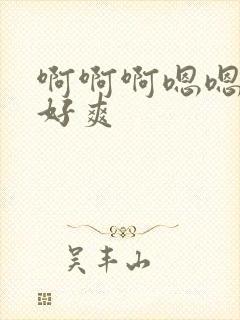 啊啊啊嗯嗯
好爽
吴丰山